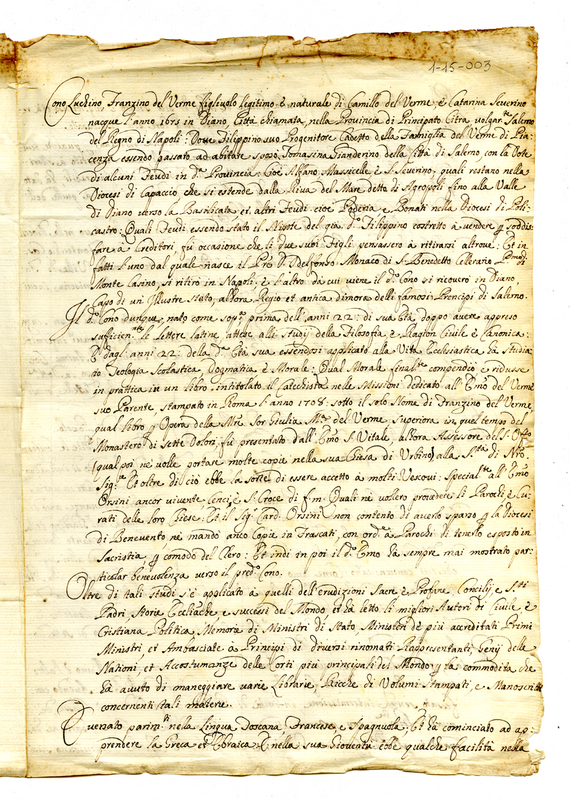 1-15-003
Cono Luchino, Franzino del Verme figliuolo legitimo è naturale di Camillo del Verme è Catarina Severino
nacque l'anno 1685 in Diano Città chiamata, nella Provincia di Principato Citra volgar.te Salerno
del Regno di Napoli: Dove Filippino suo Progenitore Cadetto della Famiglia del Verme di Pia-
cenza essendo passato ad abitare sposò Tomasina Gianderino della Città di Salerno, con la Dote
di alcuni Feudi in d.a Provincia: Cioè Alfano, Massicelle è S. Severino; quali restano nella
Diocesi di Capaccio che si estende dalla Riva del Mare detto di Agropoli fino alla Valle
di Diano verso la Basilicata et altri Feudi: cioè è Bonati nella Diocesi di Poli-
castro: Quali Feudi essendo stato il Nipote del già D. Filippino costretto à vendere p soddis-
fare à Creditori, fù occasione che li due suoi Figli pensassero à ritirarsi altrove: Et in
fatti l'uno dal quale nasce il Pre D. Idelfonso Monaco di S. Benedetto Cellerario di
Monte Casino, si ritirò in Napoli; è l'altro da cui viene il d.o Cono si ricoverò in Diano
Capo di un Illustre Stato, allora Regio et antica dimora delli famosi Principi di Salerno.
Il d.o Cono dunque, nato come sop.a prima dell'anni 22: di sua Età doppo avere appreso
sufficien.te le lettere latine attese alli studij della Filosofia è Ragion Civile è Canonica:
E dagl'anni 22: della d.a Età sua essendosi applicato alla Vita Ecclesiastica hà studia-
to Teologia Scolastica, Dogmatica è Morale: Qual Morale final.te compendiò è ridusse
in prattica in un libro intitolato il Catechista nelle Missioni Dedicato all'Emo del Verme
suo Parente, stampato in Roma l'anno 1708: sotto il solo Nome di Franzino del Verme
qual libro p Opera della Mre Sor Giulia M.a del Verme, Superiora in quel tempo del
Monastero di Sette Dolori, fù presentato dall'Emo S. Vitale, allora Assessore del S. Offo
(qual poi ne volle portare molte copie nella sua Chiesa di Urbino) alla S.tà di Nro
Sig.re Et oltre di ciò ebbe la sorte di essere accetto à molti Vescovi: Special.te all'Emo
Orsini ancor vivente è S. Croce di f.m. Quali ne vollero provedere li Parochi è Cu-
rati delle loro Chiese: Et il Sig.r Card. Orsini non contento di averlo sparso p la Diocesi
di Benevento ne mandò anco Copie in Frascati, con ord.e à Parochi di tenerlo esposto in
Sacristia p comodo del Clero: Et indi in poi il d.o Emo hà sempre mai mostrato par-
ticolar benevolenza verso il pred.o Cono.
Oltre di tali studi s'è applicato à quelli dell'erudizioni Sacre è Profane, Concilij, e S.ti
Padri, Storia Eccliastica e successi del Mondo et hà letto li migliori Autori di Civile, è
Cristiana Politica, Memoria di Ministri di Stato Ministeri de più accreditati Primi
Ministri, et Ambasciate à Principi di diversi rinomati Rappresentanti, Genij delle
Nationi et Accostumanze delle Corti più principali del Mondo p la commodità che
hà avuto di maneggiare varie Librarie, Ricche di Volumi stampati, e Manoscritti
concernenti tali materie.
È versato parim.te nella Lingua Toscana Francese, e Spagnuola. Et hà cominciato ad ap-
prendere la Greca et Ebraica. E nella sua Gioventù ebbe qualche facilità nella